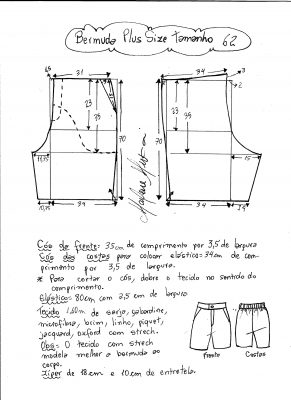 Bermuda Plus Size Tamanho 62
31
34
3
2
23
35
33
35
70
70
15
34
34
Cós da frente: 35cm de comprimento por 3,5 de largura
Cós das costas para colocar elástico = 34cm de com-
primento por 3,5 de largura.
* Para cortar o cós, dobre o tecido no sentido do
comprimento.
Elástico: 80cm com 2,5 cm de largura
Tecido de sarja, gabardine,
microfibra, brim, linho, piquet,
jacquard, oxford com strech.
Obs: O tecido com strech
modela melhor a bermuda ao
corpo.
Zíper de 18cm e 10cm de entretela.
Frente
Costas